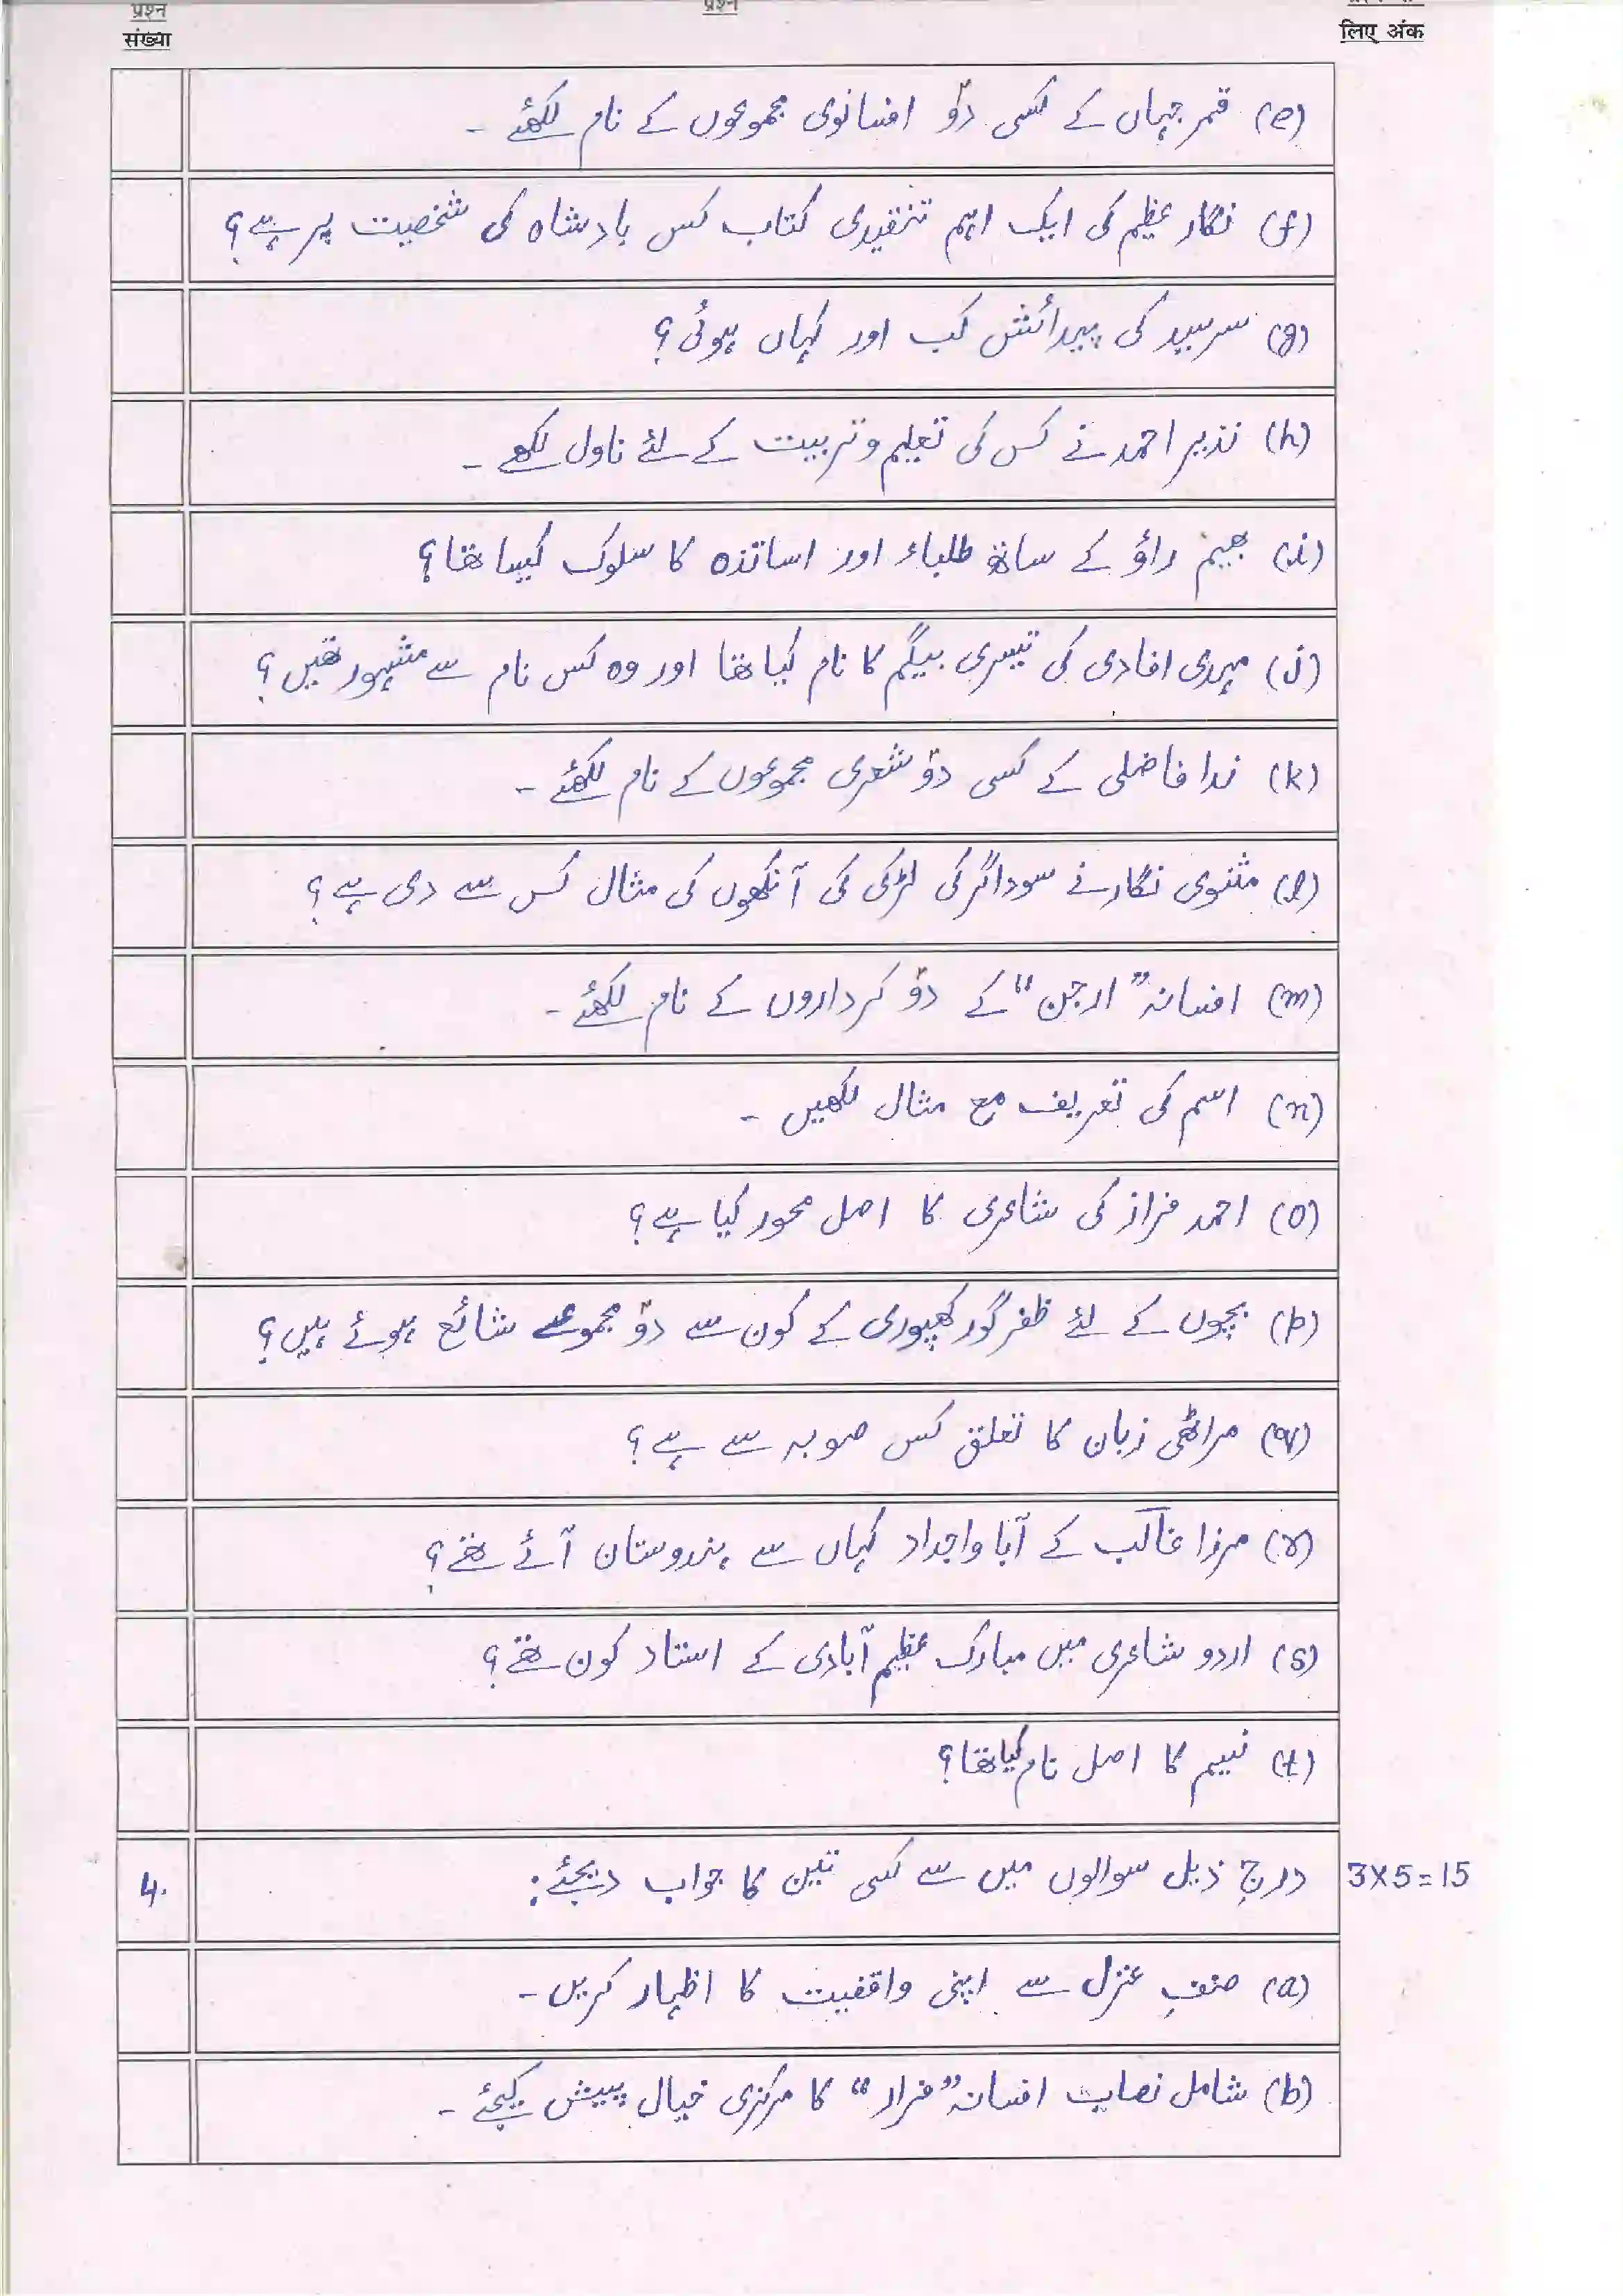 प्रश्न
संख्या
प्रश्न
लिए अंक
(e) قمر جہاں کے کسی دو افسانوی مجموعوں کے نام لکھئے ۔
(f) نگار عظیم کی ایک اہم تنقیدی کتاب کس بادشاہ کی شخصیت پر ہے؟
(g) سرسید کی پیدائش کب اور کہاں ہوئی؟
(h) نذیر احمد نے کس کی تعلیم و تربیت کے لئے ناول لکھے ۔
(i) بھیم راؤ کے ساتھ طلباء اور اساتذہ کا سلوک کیسا تھا؟
(j) مہدی افادی کی تیسری بیگم کا نام کیا تھا اور وہ کس نام سے مشہور تھیں؟
(k) ندا فاضلی کے کسی دو شعری مجموعوں کے نام لکھئے ۔
(l) مثنوی نگار نے سوداگر کی لڑکی کی آنکھوں کی مثال کس سے دی ہے؟
(m) افسانہ "ارجن" کے دو کرداروں کے نام لکھئے ۔
(n) اسم کی تعریف مع مثال لکھیں ۔
(o) احمد فراز کی شاعری کا اصل محور کیا ہے؟
(p) بچوں کے لئے ظفر گورکھپوری کے کون سے دو مجموعے شائع ہوئے ہیں؟
(q) مراٹھی زبان کا تعلق کس صوبہ سے ہے؟
(r) مرزا غالب کے آبا و اجداد کہاں سے ہندوستان آئے تھے؟
(s) اردو شاعری میں مبارک عظیم آبادی کے استاد کون تھے؟
(t) نسیم کا اصل نام کیا تھا؟
4. درج ذیل سوالوں میں سے کسی تین کا جواب دیجئے: 3X5=15
(a) صنفِ غزل سے اپنی واقفیت کا اظہار کریں ۔
(b) شامل نصاب افسانہ "فرار" کا مرکزی خیال پیش کیجئے ۔